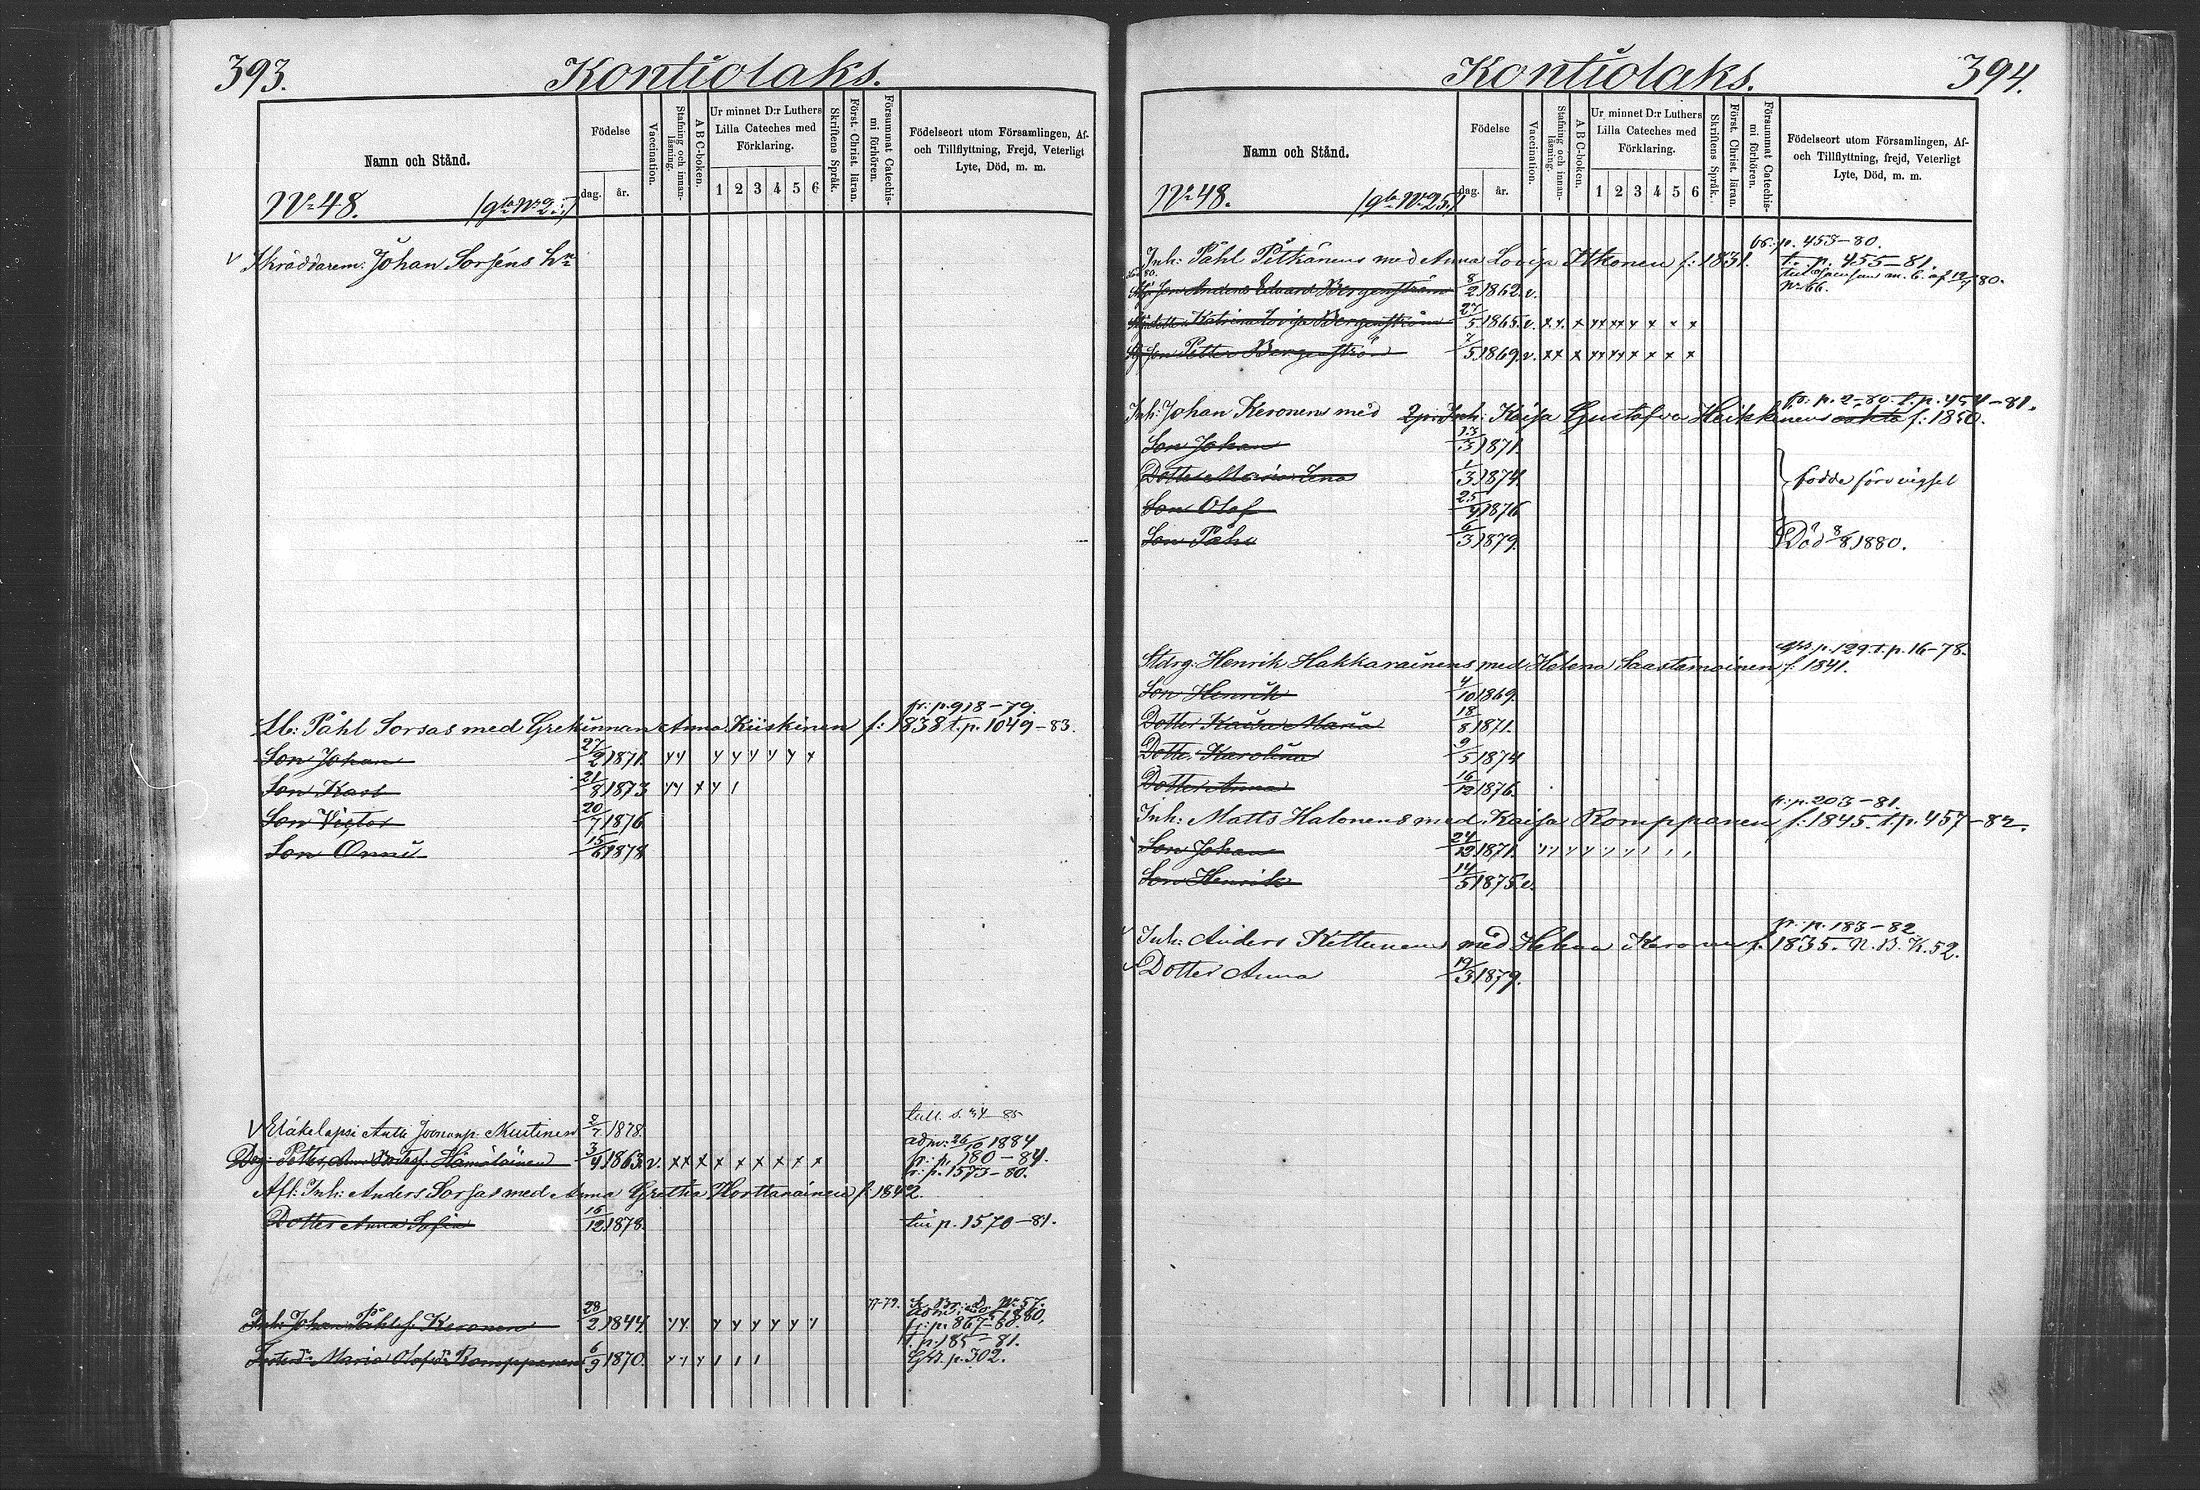 393.
Kontiolaks.
Namn och Stånd.
Födelse
dag. år.
Vaccination.
Stafning och innanläsning.
A B C-boken.
Ur minnet D:r Luthers Lilla Cateches med Förklaring.
1 2 3 4 5 6
Skriftens Språk.
Först. Christ. läran.
Försummat Catechismi förhören.
Födelseort utom Församlingen, Af- och Tillflyttning, Frejd, Veterligt Lyte, Död, m. m.
No 48.
Skräddarem: Johan Sorséns
fr. p. 918-79.
Påhl Sorsas med Grekinnan Anna Kiiskinen f: 1838 t. p. 1049-83.
Son Johan 27/2 1871.
Son Karl 21/8 1873
Son Victor 20/7 1876
Son Onni 15/6 1878
Antti Nuutinen 1878.
adm: 1884
Petter Hämäläinen 3/4 1863. v. x x x x x x x x x fr: p. 180-84.
fr: p. 1573-80.
Afl: Inh: Anders Sorsas med Anna Gretha Horttanainen f. 1842.
Dotter Anna Sofia 16/12 1878. p. 1570-81.
77-79.
Inh: Johan Påhlsf. Keronen 28/2 1844. fr: p. 867-80.
t. p. 185-81.
Maria Olofsdr Romppanen 6/9 1870. p. 302.
394.
Kontiolaks.
Namn och Stånd.
Födelse
dag. år.
Vaccination.
Stafning och innanläsning.
A B C-boken.
Ur minnet D:r Luthers Lilla Cateches med Förklaring.
1 2 3 4 5 6
Skriftens Språk.
Först. Christ. läran.
Försummat Catechismi förhören.
Födelseort utom Församlingen, Af- och Tillflyttning, frejd, Veterligt Lyte, Död, m. m.
No 48.
p. 453-80.
Inh: Påhl Pitkänens med Anna Lovisa Itkonen f: 1831. t. p. 455-81.
Son Anders Edvard Bergenström 8/2 1862. v. No 66.
Katrina Lovisa Bergenström 27/5 1865. v. x x x x x x x x x x
Son Petter Bergenström 7/5 1869. v. x x x x x x x x x
fr: p. 2-80. t. p. 454-81.
Inh: Johan Keronens med Kaisa Gustafva Heikkinens f: 1850.
Son Johan 13/3 1871.
Dotter Maria Lena 1/3 1874.
födde före vigsel
Son Olof 25/4 1876
Son Påhl 6/3 1879. Död 8/8 1880.
p. 129 t. p. 16-78.
Stdrg: Henrik Hakkarainens med Helena Saastamoinen f. 1841.
Son Henrik 4/10 1869.
Dotter Kaisa Maria 18/8 1871.
Dotter Karolina 9/5 1874
Dotter Anna 16/12 1876.
fr: p. 203-81.
Inh: Matts Halonens med Kaisa Romppanen f. 1845. t. p. 457-82.
Son Johan 24/12 1871.
Son Henrik 14/5 1875. v.
fr: p. 183-82.
Inh: Anders Kettunens med Helena Keronen f. 1835. N. B. K. 52.
Dotter Anna 19/3 1879.